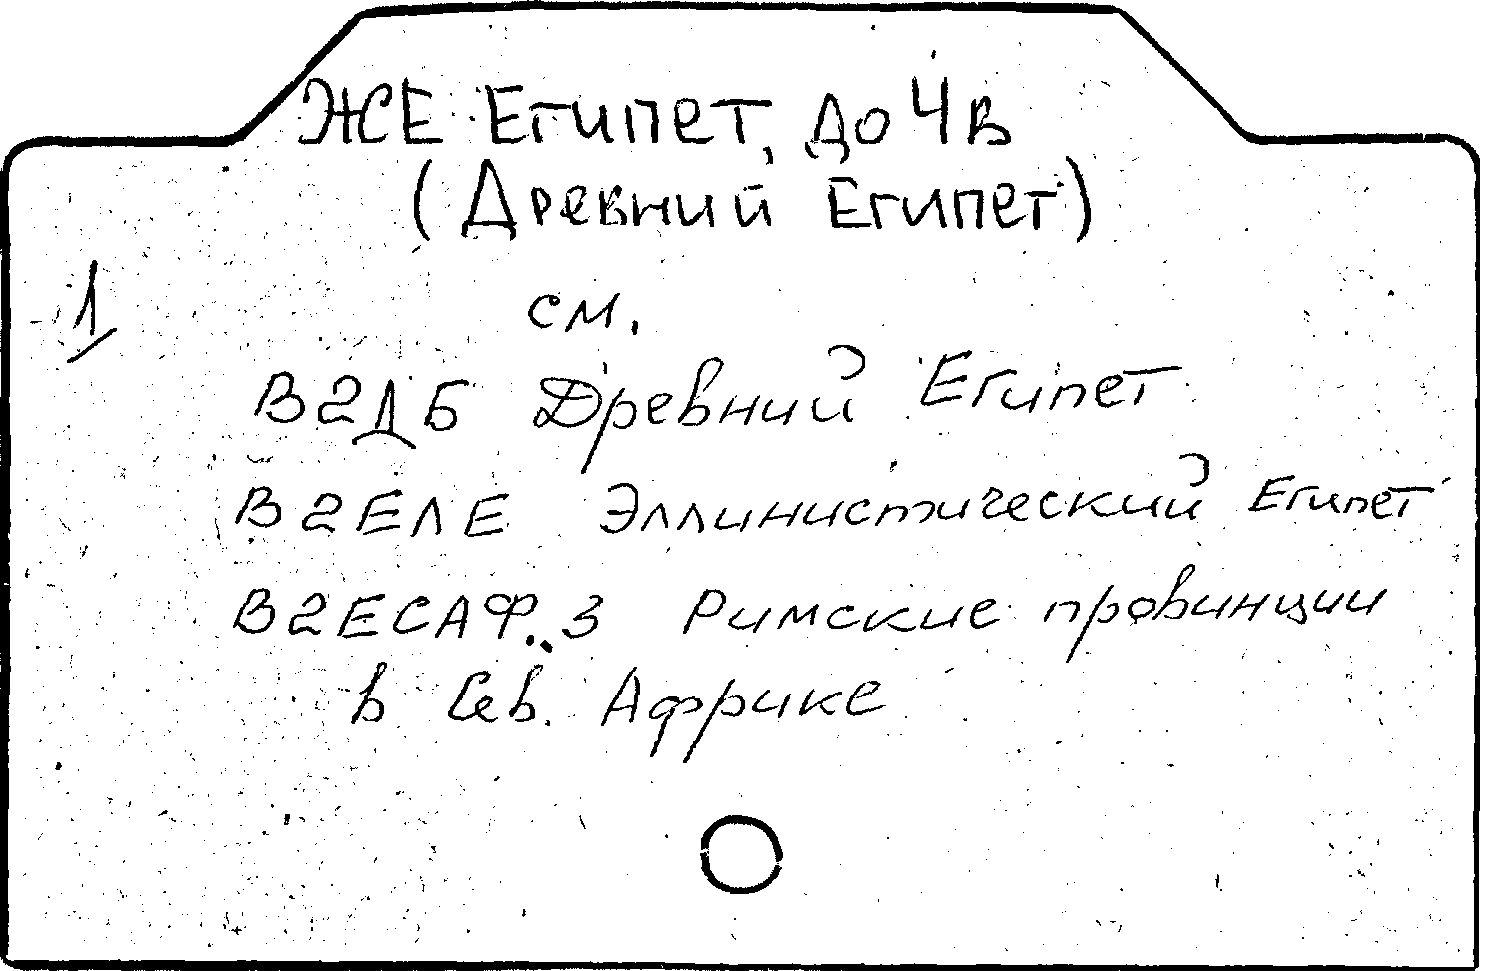 ЖЕ Египет, до 4 в
(Древний Египет)
1
см.
В2ДБ Древний Египет
В2ЕЛЕ Эллинистический Египет
В2ЕСАФ.3 Римские провинции
в Сев. Африке